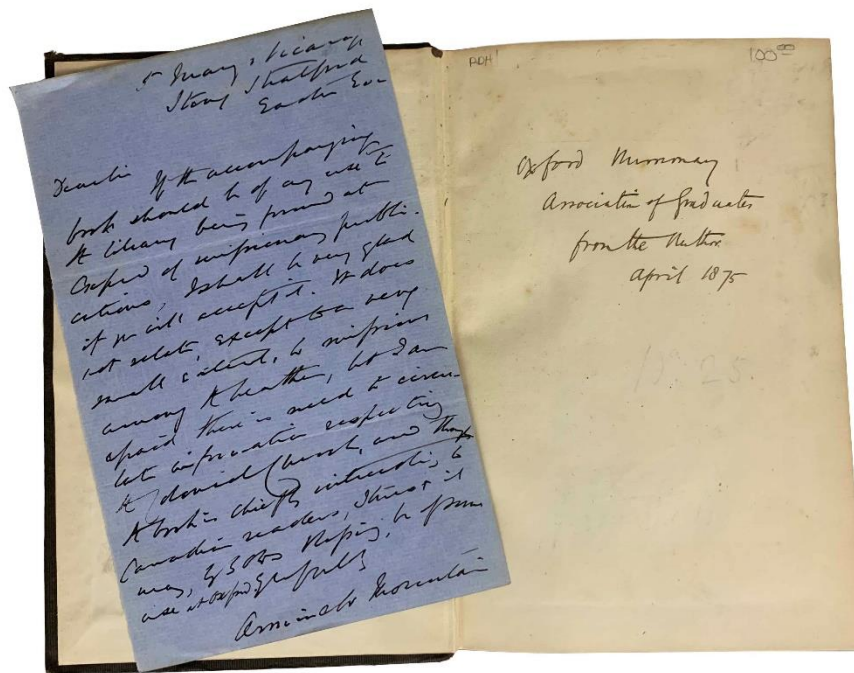 St Mary's Vicarage
Stony Stratford
Easter Eve
Dear Sir If the accompanying
book should be of any use to
the library being formed at
Oxford of missionary publi-
cations, I shall be very glad
if you will accept it. It does
not relate, except to a very
small extent, to missions
among the heathen, but I am
afraid there is need to circu-
late information respecting
the Colonial Church, and though
the book is chiefly interesting to
Canadian readers, I trust it
may, by God's blessing, be of some
use at Oxford
Armine W Mountain
RDH
100.00
Oxford Missionary
Association of Graduates
from the Author
April 1875